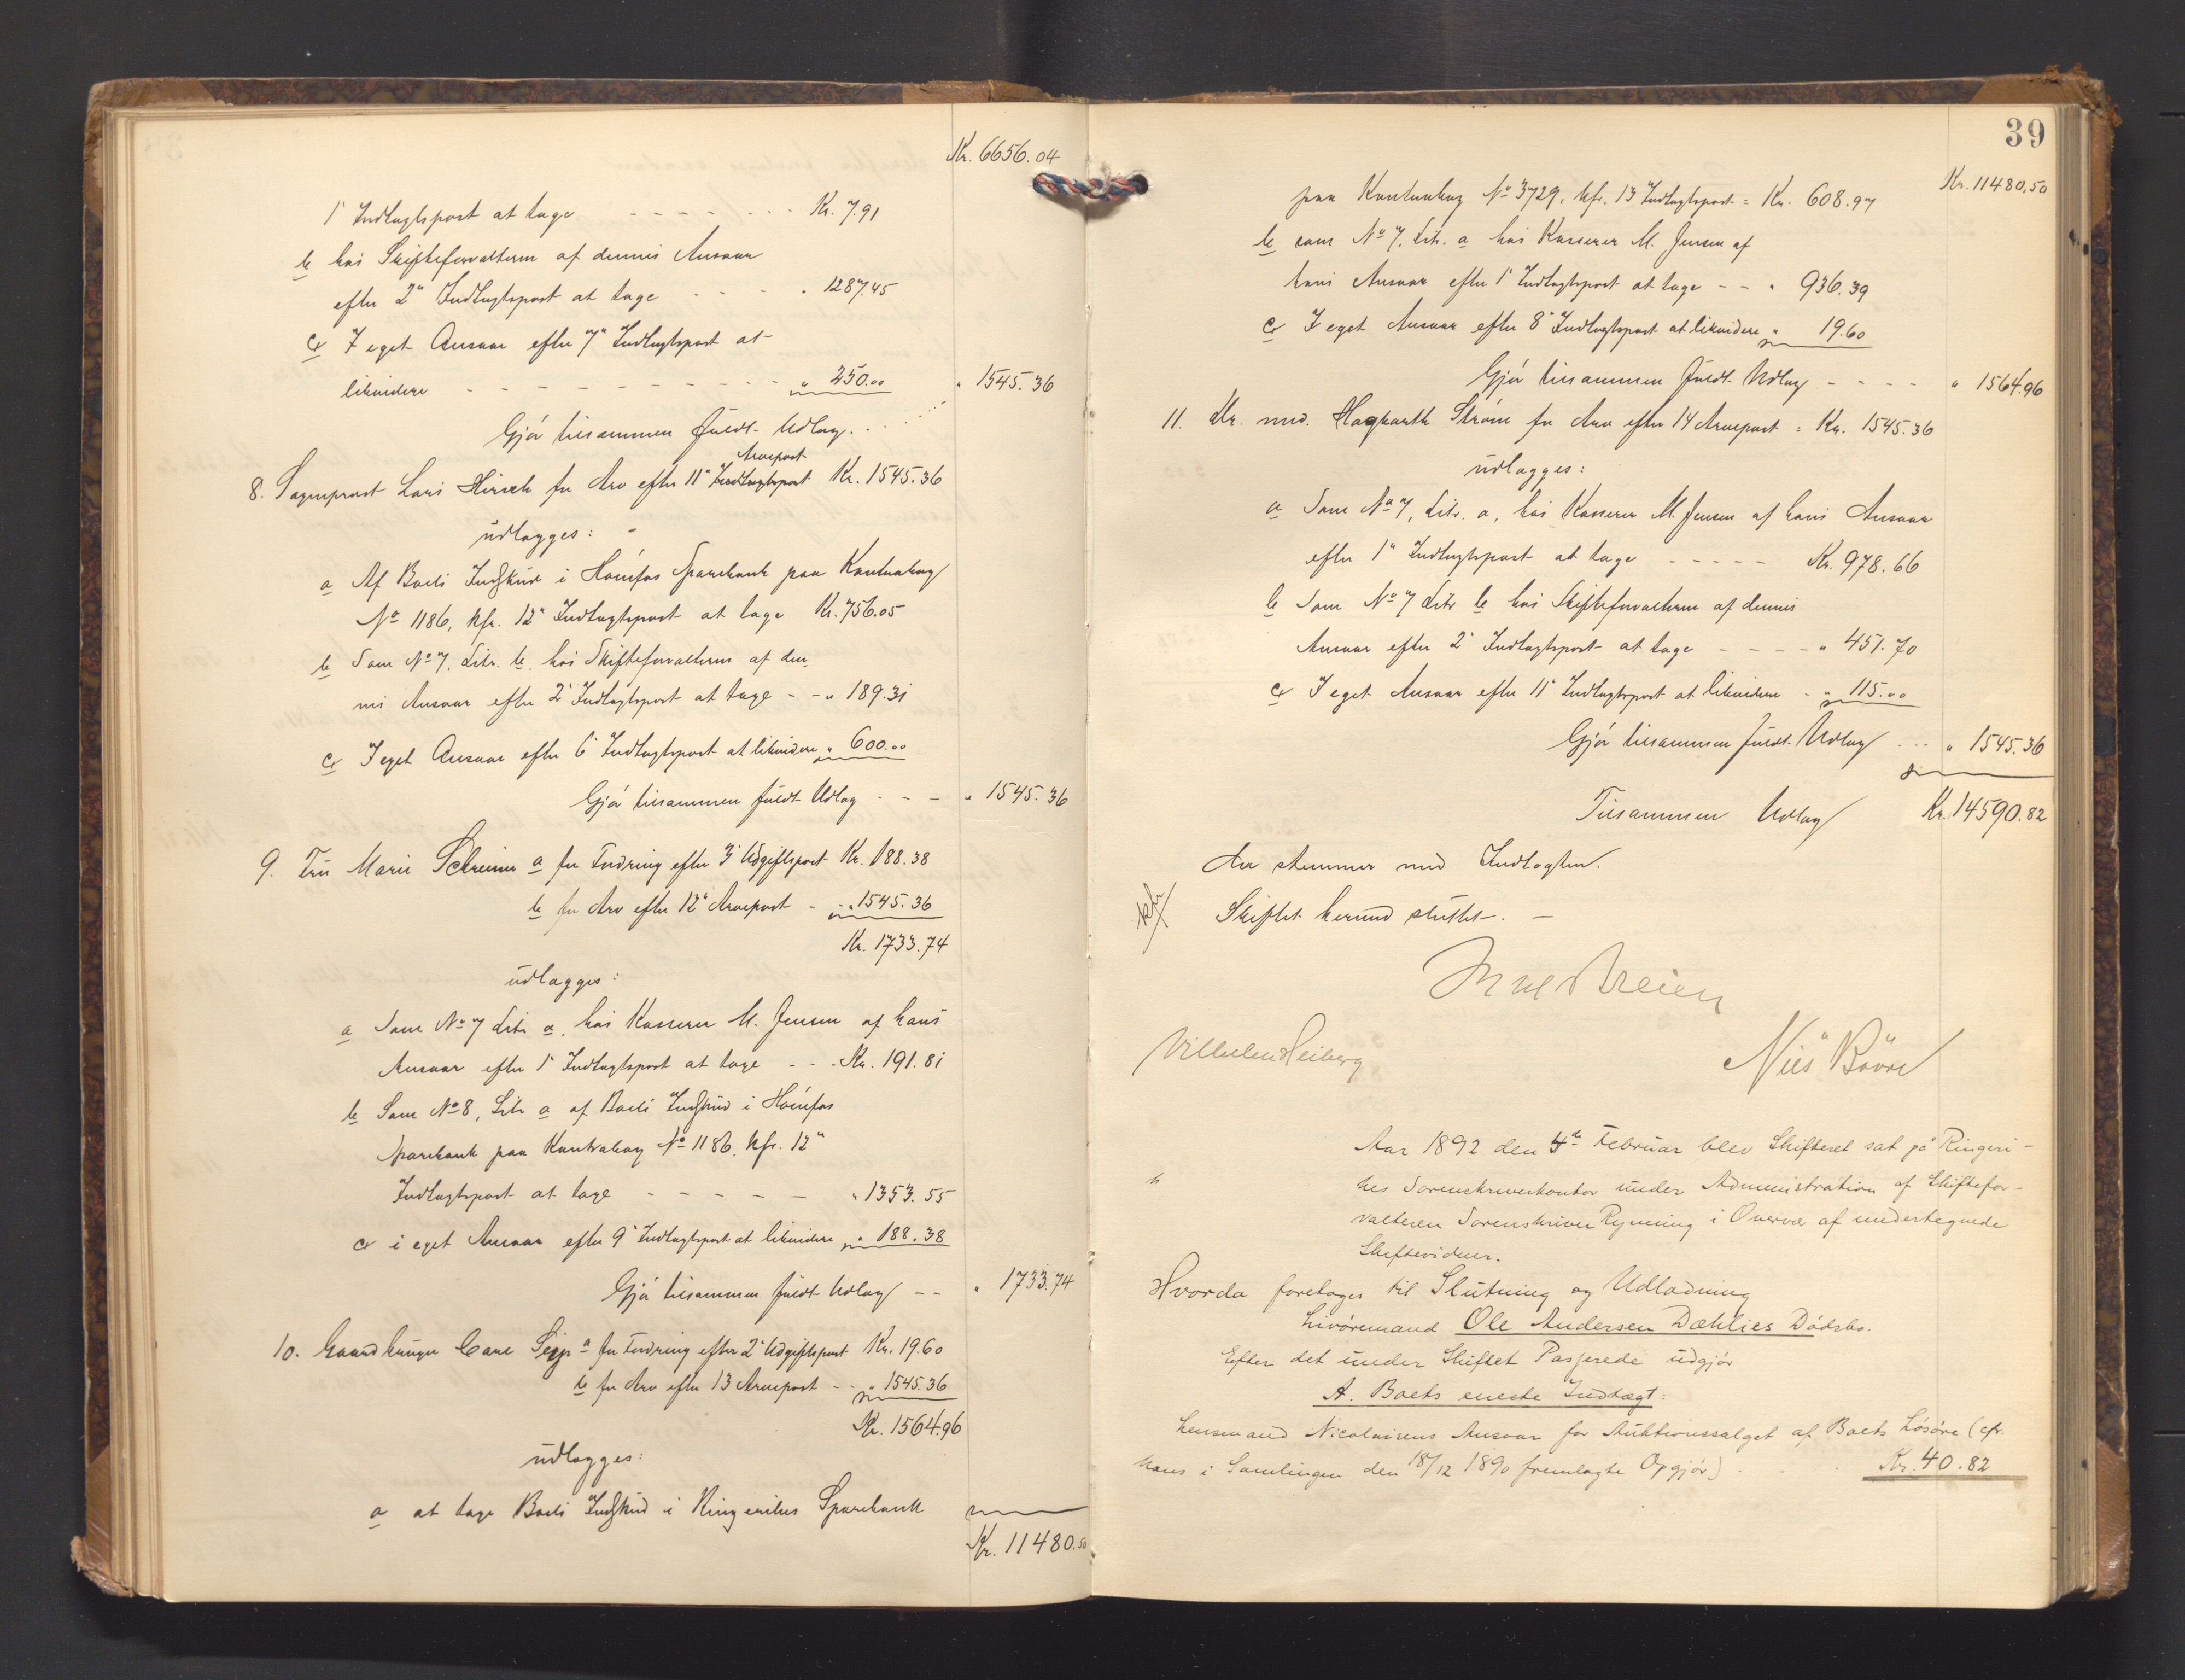 Kr. 6656.04
1' Indtægtspost at tage - - - - - - - Kr. 7.91
b hos Skifteforvalteren af dennes Ansvar
efter 2" Indtægtspost at tage - - - " 1287.45
c I eget Ansvar efter 7" Indtægtspost at
likvidere - - - - - - - - - - " 250.00 " 1545.36
Gjør tilsammen fuldt Udlæg . . .
8. Sogneprest Lars Hirsch for Arv efter 11" Arvepost Kr. 1545.36
udlægges:
a Af Boets Indskud i Hønefos Sparebank paa Kontrabog
No 1186, kfr. 12" Indtægtspost at tage Kr. 756.05
b Som No 7, Litr. b, hos Skifteforvalteren af den-
nes Ansvar efter 2' Indtægtspost at tage - - " 189.31
c I eget Ansvar efter 6' Indtægtspost at likvidere " 600.00
Gjør tilsammen fuldt Udlæg - - - " 1545.36
9. Fru Marie Schreiner a for Fordring efter 3' Udgiftspost Kr. 188.38
b for Arv efter 12' Arvepost - - " 1545.36
Kr. 1733.74
udlægges:
a Som No 7 Litr a, hos Kasserer M. Jensen af hans
Ansvar efter 1' Indtægtspost at tage - - - Kr. 191.81
b Som No 8, Litr a af Boets Indskud i Hønefos
Sparebank paa Kontrabog No 1186, kfr. 12"
Indtægtspost at tage - - - - - - " 1353.55
c i eget Ansvar efter 9' Indtægtspost at likvidere " 188.38
Gjør tilsammen fuldt Udlæg - - " 1733.74
10. Gaardbruger Carl a for Fordring efter 2' Udgiftspost Kr. 19.60
b for Arv efter 13 Arvepost - - " 1545.36
Kr. 1564.96
udlægges:
a at tage Boets Indskud i Ringerikes Sparebank
Kr. 11480.50
39
Kr. 11480,50
paa Kontrabog No 3729, kfr. 13 Indtægtspost = Kr. 608.97
b som No 7, Litr. a hos Kasserer M. Jensen af
hans Ansvar efter 1' Indtægtspost at tage - - " 936.39
c I eget Ansvar efter 8' Indtægtspost at likvidere " 19.60
Gjør tilsammen fuldt Udlæg - - - - " 1564.96
11. Dr. med. Hagbarth Strøm for Arv efter 14 Arvepost = Kr. 1545.36
udlægges:
a Som No 7, Litr. a, hos Kasserer M. Jensen af hans Ansvar
efter 1" Indtægtspost at tage - - - - - Kr. 978.66
b Som No 7 Litr b hos Skifteforvalteren af dennes
Ansvar efter 2' Indtægtspost at tage - - - - " 451.70
c I eget Ansvar efter 11' Indtægtspost at likvidere - " 115.00
Gjør tilsammen fuldt Udlæg . . . " 1545.36
Tilsammen Udlæg Kr. 14590.82
der stemmer med Indtægten.
kfr Skiftet herved sluttet. —
Breien
Vilhelm Heiberg
Nils Bövre
Aar 1892 den 4de Februar blev Skifteret sat på Ringeri-
kes Sorenskriverkontor under Administration af Skiftefor-
valteren Sorenskriver Rynning i Overvær af undertegnede
Skiftevidner.
Hvorda foretoges til Slutning og Udlodning
Livøremand Ole Andersen Dæhlies Dödsbo.
Efter det under Skiftet Passerede udgjør
A. Boets eneste Indtægt:
Lensmand Nicolaisens Ansvar for Auktionssalget af Boets Løsøre (cfr.
hans i Samlingen den 18/12 1890 fremlagte Opgjør) . . . Kr. 40.82